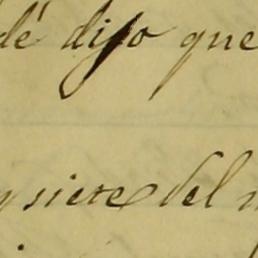 dé dijo que
y siete del